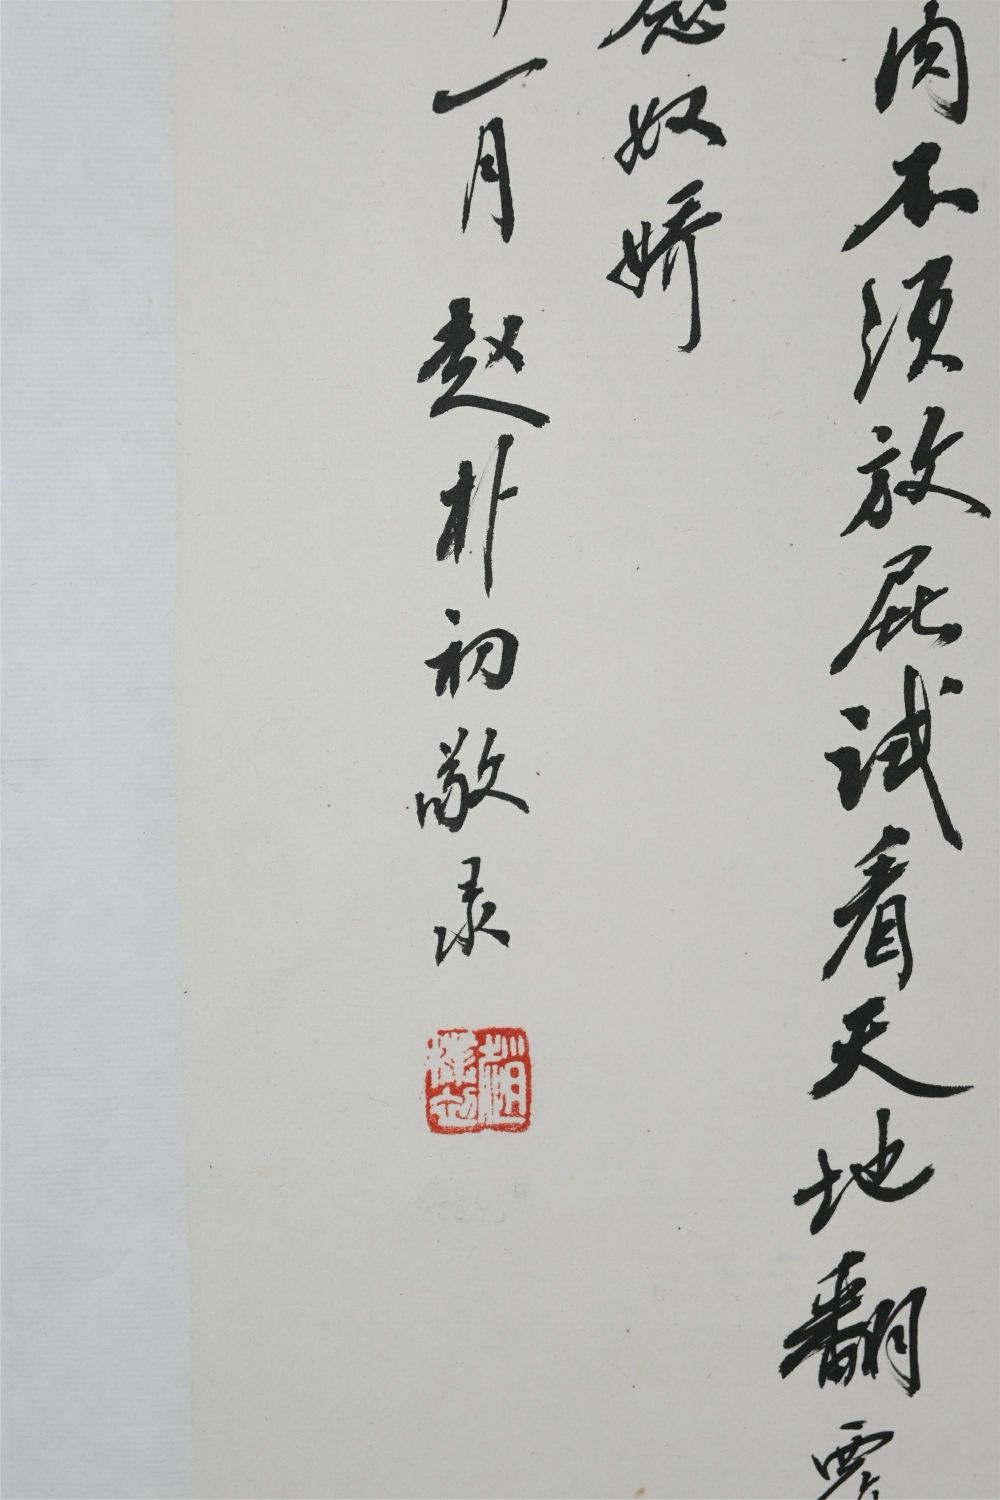 肉不须放屁试看天地翻覆
念奴娇
一月赵朴初敬录
赵朴初